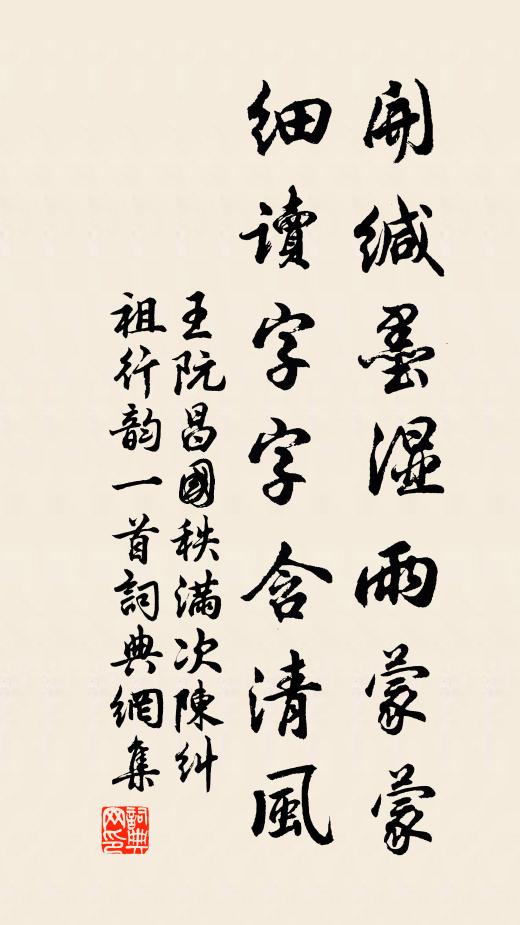 開緘墨濕雨蒙蒙
細读字字含清風
王阮昌國秩滿次陳糾
祖行韵一首詞典網集
詞典网印